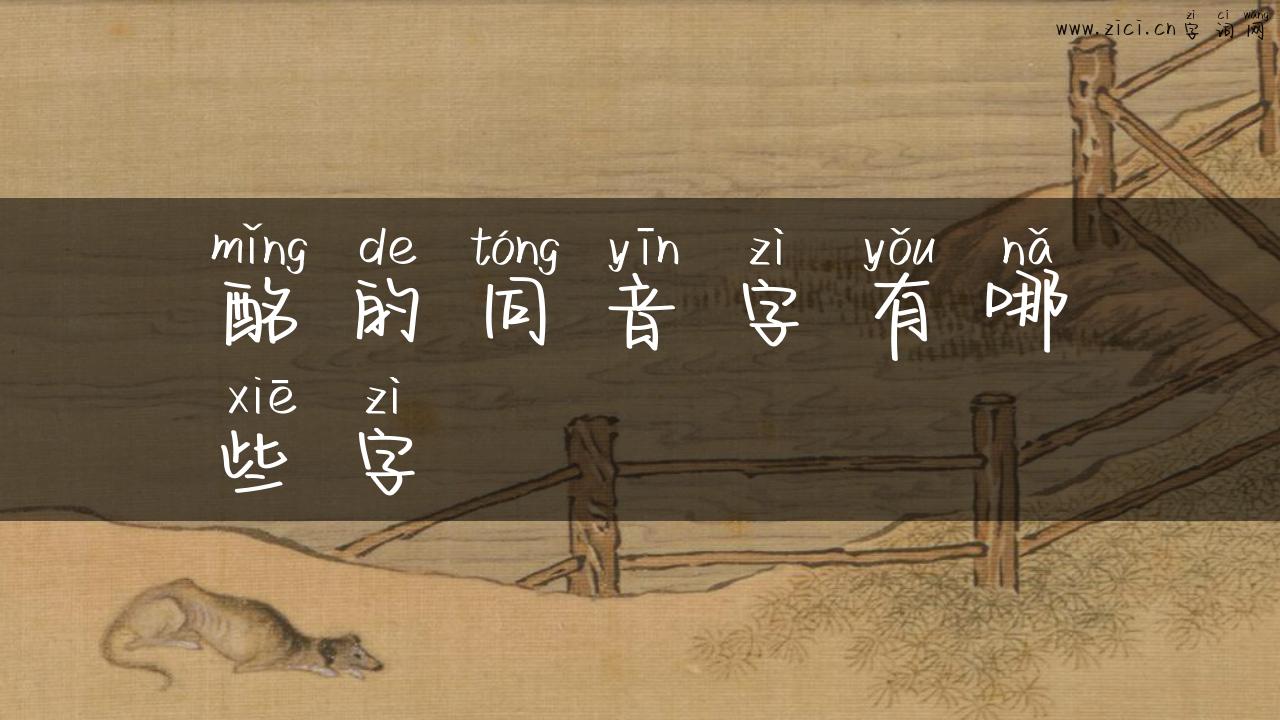 zì cí wǎng
www.zici.cn 字词网
mǐng de tóng yīn zì yǒu nǎ
酩的同音字有哪
xiē zì
些字